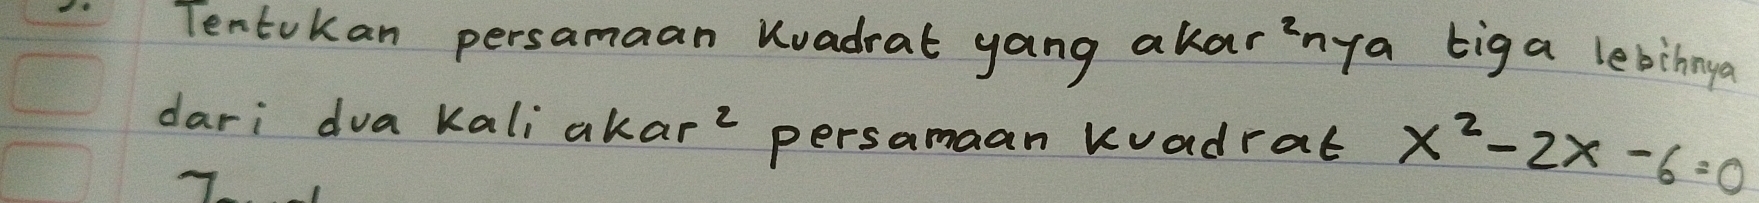 Tentukan persamaan kuadrat yang akar²nya tiga lebihnya
dari dua kali akar² persamaan kuadrat x²-2x-6=0